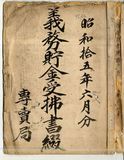 昭和拾五年六月分
義務貯金受拂書綴
專賣局